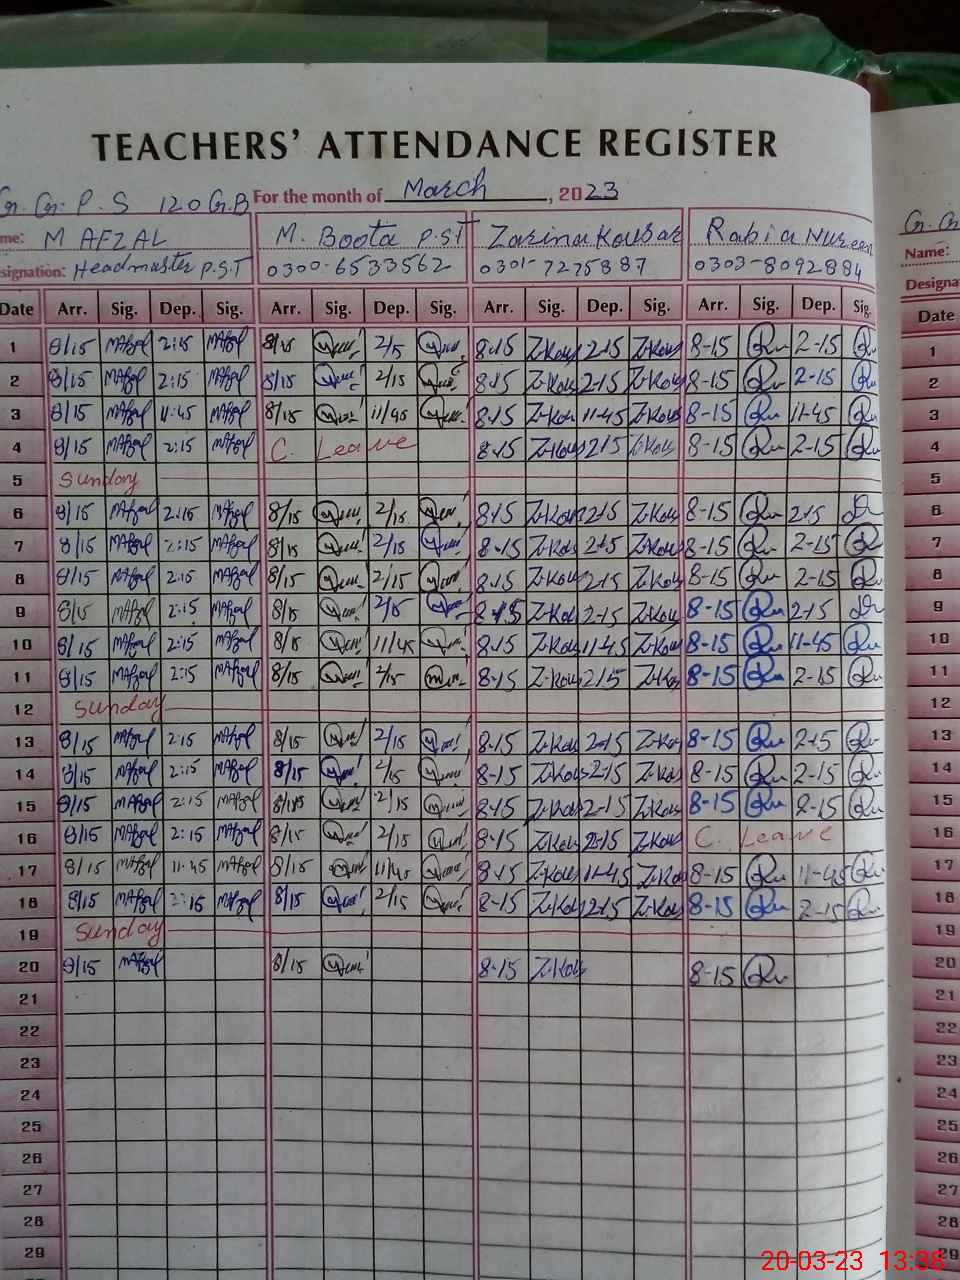 TEACHERS' ATTENDANCE REGISTER
Gr. Gr: P. S 120 G.B For the month of March, 2023
me: M AFZAL M. Boota P.S.T Zarina Kousar Rabia Nureen
esignation: Headmaster P.S.T 0300-6533562 0301-7275887 0303-8092884
Date Arr. Sig. Dep. Sig. Arr. Sig. Dep. Sig. Arr. Sig. Dep. Sig. Arr. Sig. Dep. Sig.
1 8/15 MAfzal 2:15 MAfzal 8/15 2/15 8-15 Z-Kous 2-15 Z-Kous 8-15 2-15
2 8/15 MAfzal 2:15 MAfzal 8/15 2/15 8-15 Z-Kous 2-15 Z-Kous 8-15 2-15
3 8/15 MAfzal 11:45 MAfzal 8/15 11/45 8-15 Z-Kous 11-45 Z-Kous 8-15 11-45
4 8/15 MAfzal 2:15 MAfzal C. Leave 8-15 Z-Kous 2-15 Z-Kous 8-15 2-15
5 Sunday
6 8/15 MAfzal 2:15 MAfzal 8/15 2/15 8-15 Z-Kous 2-15 Z-Kous 8-15 2-15
7 8/15 MAfzal 2:15 MAfzal 8/15 2/15 8-15 Z-Kous 2-15 Z-Kous 8-15 2-15
8 8/15 MAfzal 2:15 MAfzal 8/15 2/15 8-15 Z-Kous 2-15 Z-Kous 8-15 2-15
9 8/15 MAfzal 2:15 MAfzal 8/15 2/15 8-15 Z-Kous 2-15 Z-Kous 8-15 2-15
10 8/15 MAfzal 2:15 MAfzal 8/15 11/45 8-15 Z-Kous 11-45 Z-Kous 8-15 11-45
11 8/15 MAfzal 2:15 MAfzal 8/15 2/15 8-15 Z-Kous 2-15 Z-Kous 8-15 2-15
12 Sunday
13 8/15 MAfzal 2:15 MAfzal 8/15 2/15 8-15 Z-Kous 2-15 Z-Kous 8-15 2-15
14 8/15 MAfzal 2:15 MAfzal 8/15 2/15 8-15 Z-Kous 2-15 Z-Kous 8-15 2-15
15 8/15 MAfzal 2:15 MAfzal 8/15 2/15 8-15 Z-Kous 2-15 Z-Kous 8-15 2-15
16 8/15 MAfzal 2:15 MAfzal 8/15 2/15 8-15 Z-Kous 2-15 Z-Kous C. Leave
17 8/15 MAfzal 11:45 MAfzal 8/15 11/45 8-15 Z-Kous 11-45 Z-Kous 8-15 11-45
18 8/15 MAfzal 2:15 MAfzal 8/15 2/15 8-15 Z-Kous 2-15 Z-Kous 8-15 2-15
19 Sunday
20 8/15 MAfzal 8/15 8-15 Z-Kous 8-15
21
22
23
24
25
26
27
28
29
Gr. Gr
Name:
Designa
Date
1
2
3
4
5
6
7
8
9
10
11
12
13
14
15
16
17
18
19
20
21
22
23
24
25
26
27
28
29
20-03-23 13:38